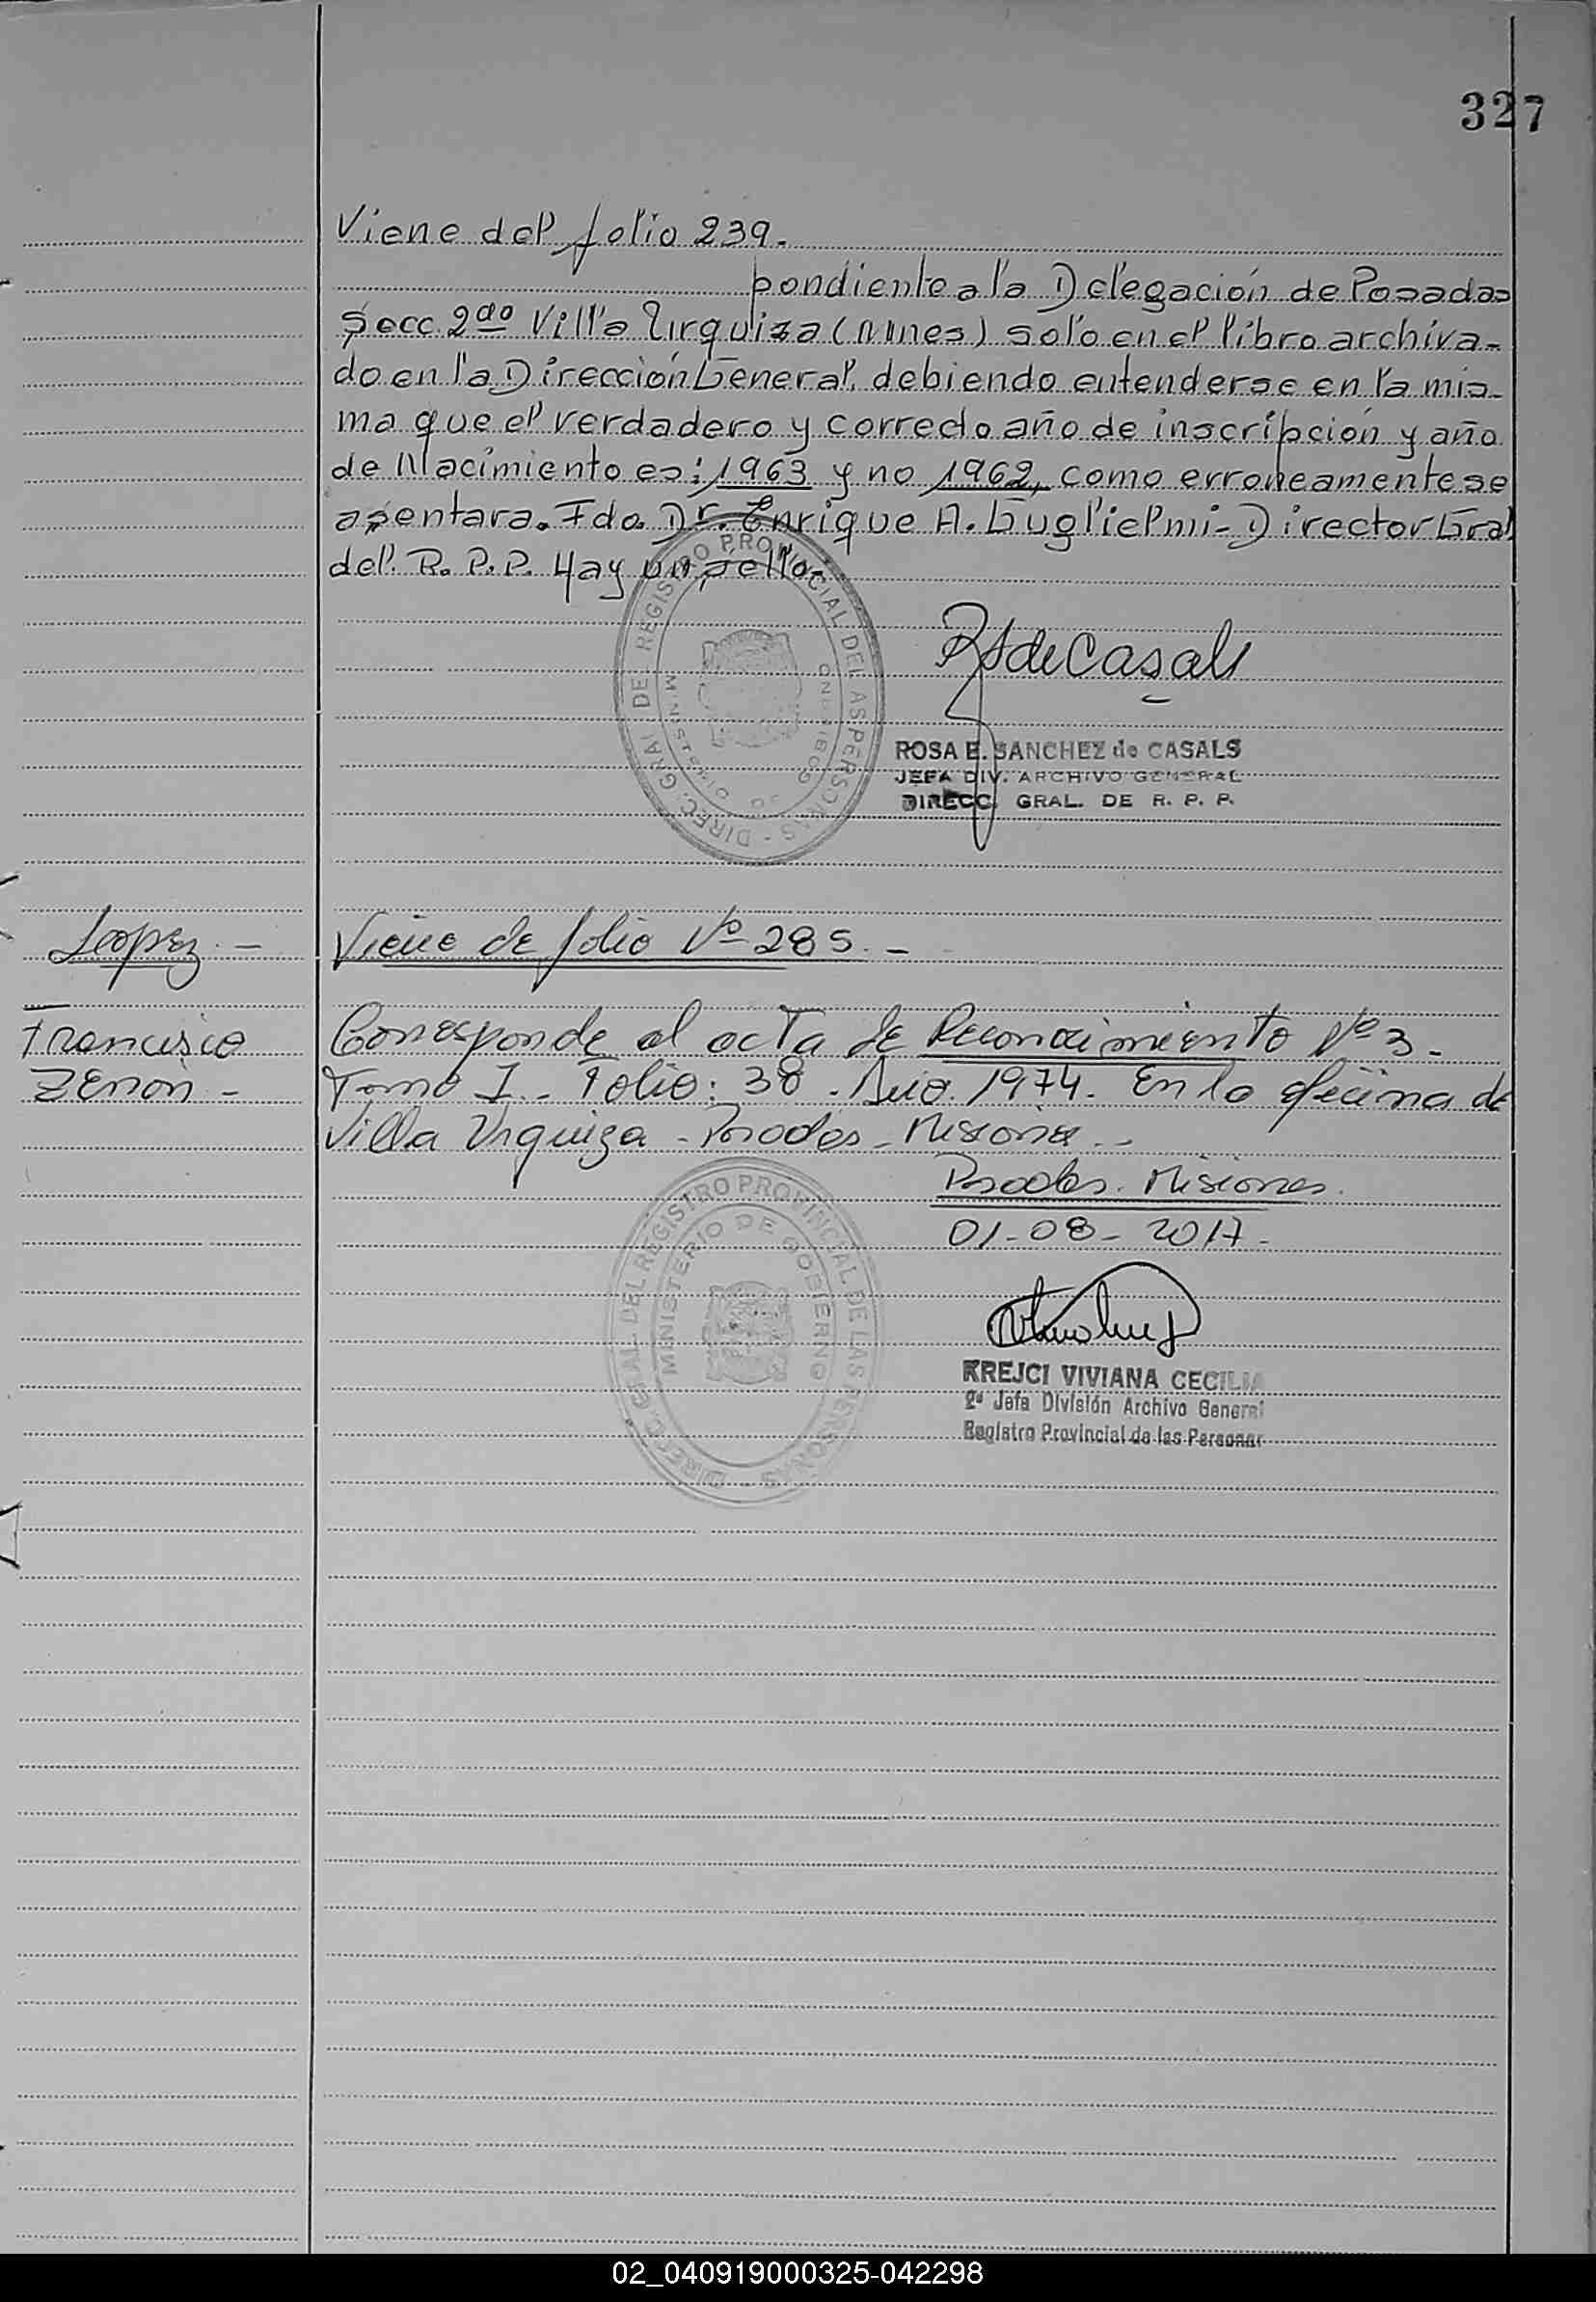 327
Viene del folio 239.
pondiente a la Delegación de Posadas
Secc. 2da Villa Urquiza (Mnes) solo en el libro archiva-
do en la Dirección General, debiendo entenderse en la mis-
ma que el verdadero y correcto año de inscripción y año
de Nacimiento es: 1963 y no 1962, como erroneamente se
asentara. Fdo. Dr. Enrique A. Guglielmi - Director Gral
del. R. P. P. Hay un sello.
DIREC. GRAL. DE REGISTRO PROVINCIAL DE LAS PERSONAS -
MINISTERIO DE GOBIERNO
RS de Casals
ROSA E. SANCHEZ de CASALS
JEFA DIV. ARCHIVO GENERAL
DIRECC. GRAL. DE R. P. P.
Lopez. -
Viene de folio Nº 285. -
Francisco
Corresponde al acta de Reconocimiento Nº 3 -
Zenon -
Tomo I - Folio: 38 - Año. 1974. En la oficina de
Villa Urquiza - Posadas - Misiones -
Posadas. Misiones.
01-08-2017-
DIREC. GRAL. DEL REGISTRO PROVINCIAL DE LAS PERSONAS
MINISTERIO DE GOBIERNO
KREJCI VIVIANA CECILIA
2ª Jefa División Archivo General
Registro Provincial de las Personas
02_040919000325-042298